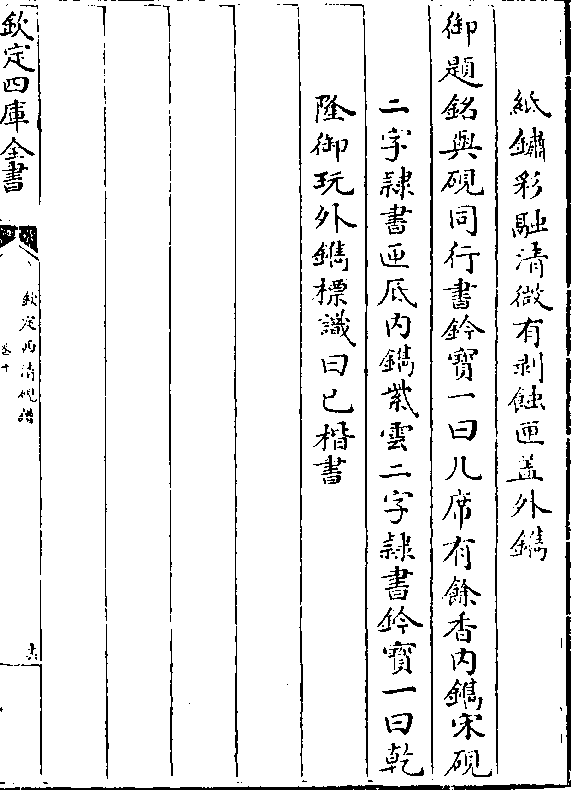 紙鏽彩融清微有剥蝕匣葢外鐫
御題銘與硯同行書鈐寶一曰几席有餘香内鐫宋硯
二字隷書匣底内鐫紫雲二字隷書鈐寳一曰乾
隆御玩外鐫標識曰已楷書
欽定四庫全書
欽定西清硯譜
卷十